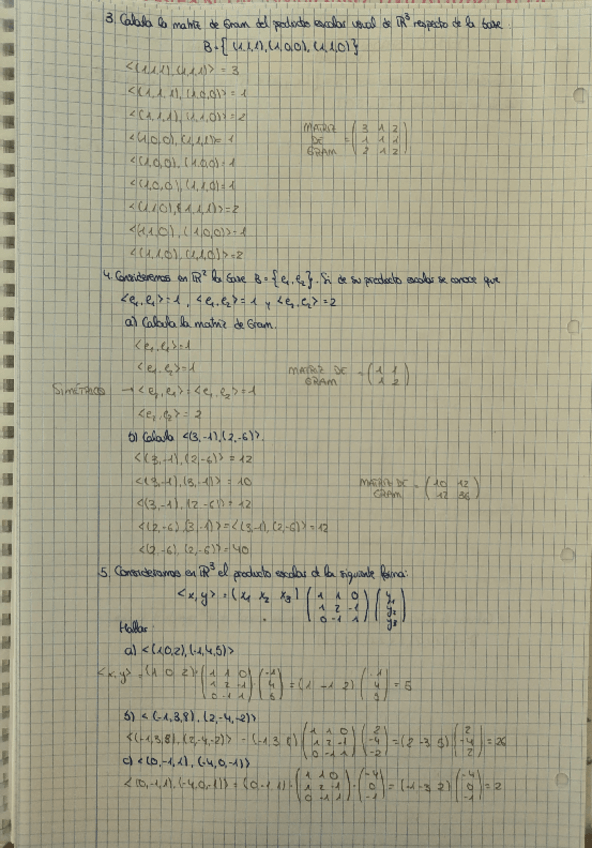 3. Calcula la matriz de Gram del producto escalar usual de ℝ³ respecto de la base
B={(1,1,1),(1,0,0),(1,1,0)}
<(1,1,1),(1,1,1)> = 3
<(1,1,1),(1,0,0)> = 1
<(1,1,1),(1,1,0)> = 2
<(1,0,0),(1,1,1)> = 1
<(1,0,0),(1,0,0)> = 1
<(1,0,0),(1,1,0)> = 1
<(1,1,0),(1,1,1)> = 2
<(1,1,0),(1,0,0)> = 1
<(1,1,0),(1,1,0)> = 2
MATRIZ DE GRAM = (3 1 2
1 1 1
2 1 2)
4. Consideremos en ℝ² la base B={e₁,e₂}. Si de su producto escalar se conoce que
<e₁,e₁>=1, <e₁,e₂>=1 y <e₂,e₂>=2
a) Calcula la matriz de Gram.
<e₁,e₁>=1
<e₁,e₂>=1
SIMÉTRICO → <e₂,e₁>=<e₁,e₂>=1
<e₂,e₂>=2
MATRIZ DE GRAM = (1 1
1 2)
b) Calcula <(3,-1),(2,-6)>.
<(3,-1),(2,-6)> = 12
<(3,-1),(3,-1)> = 10
<(3,-1),(2,-6)> = 12
<(2,-6),(3,-1)>=<(3,-1),(2,-6)>=12
<(2,-6),(2,-6)> = 40
MATRIZ DE GRAM = (10 12
12 36)
5. Consideramos en ℝ³ el producto escalar de la siguiente forma:
<x,y> = (x₁ x₂ x₃) (1 1 0
1 2 -1
0 -1 1) (y₁
y₂
y₃)
Hallar:
a) <(1,0,2),(-1,4,5)>
<x,y> = (1 0 2)·(1 1 0
1 2 -1
0 -1 1)(-1
4
5) = (1 -1 2)(-1
4
5) = 5
b) <(-1,3,8),(2,-4,-2)>
<(-1,3,8),(2,-4,-2)> = (-1 3 8)(1 1 0
1 2 -1
0 -1 1)(2
-4
-2) = (2 -3 5)(2
-4
2) = 26
c) <(0,-1,1),(-4,0,-1)>
<(0,-1,1),(-4,0,-1)> = (0 -1 1)·(1 1 0
1 2 -1
0 -1 1)·(-4
0
-1) = (-1 -3 2)(-4
0
-1) = 2